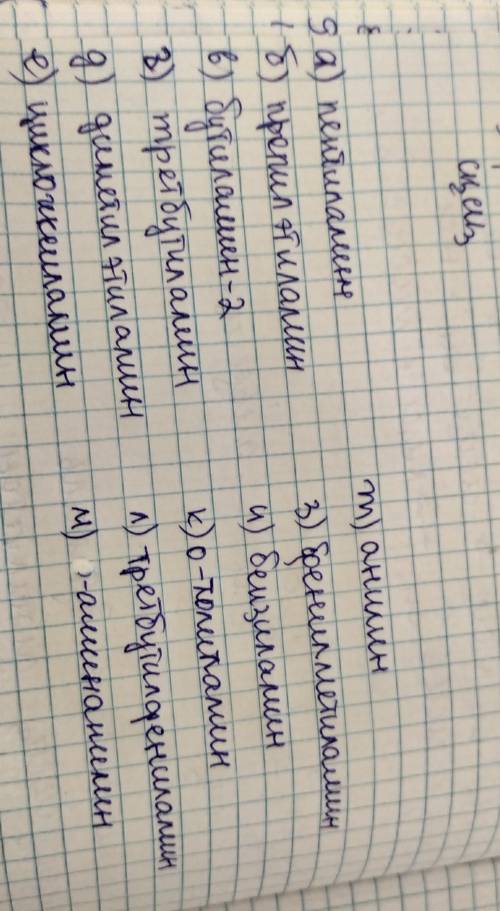 сцеиз
а) пентиламин
б) пропил этиламин
в) бутиламин-2
г) третбутиламин
д) диметил этиламин
е) циклогексиламин
т) анилин
з) фенилметиламин
и) бензиламин
к) о-толиламин
л) третбутилфениламин
м) -аминоанилин